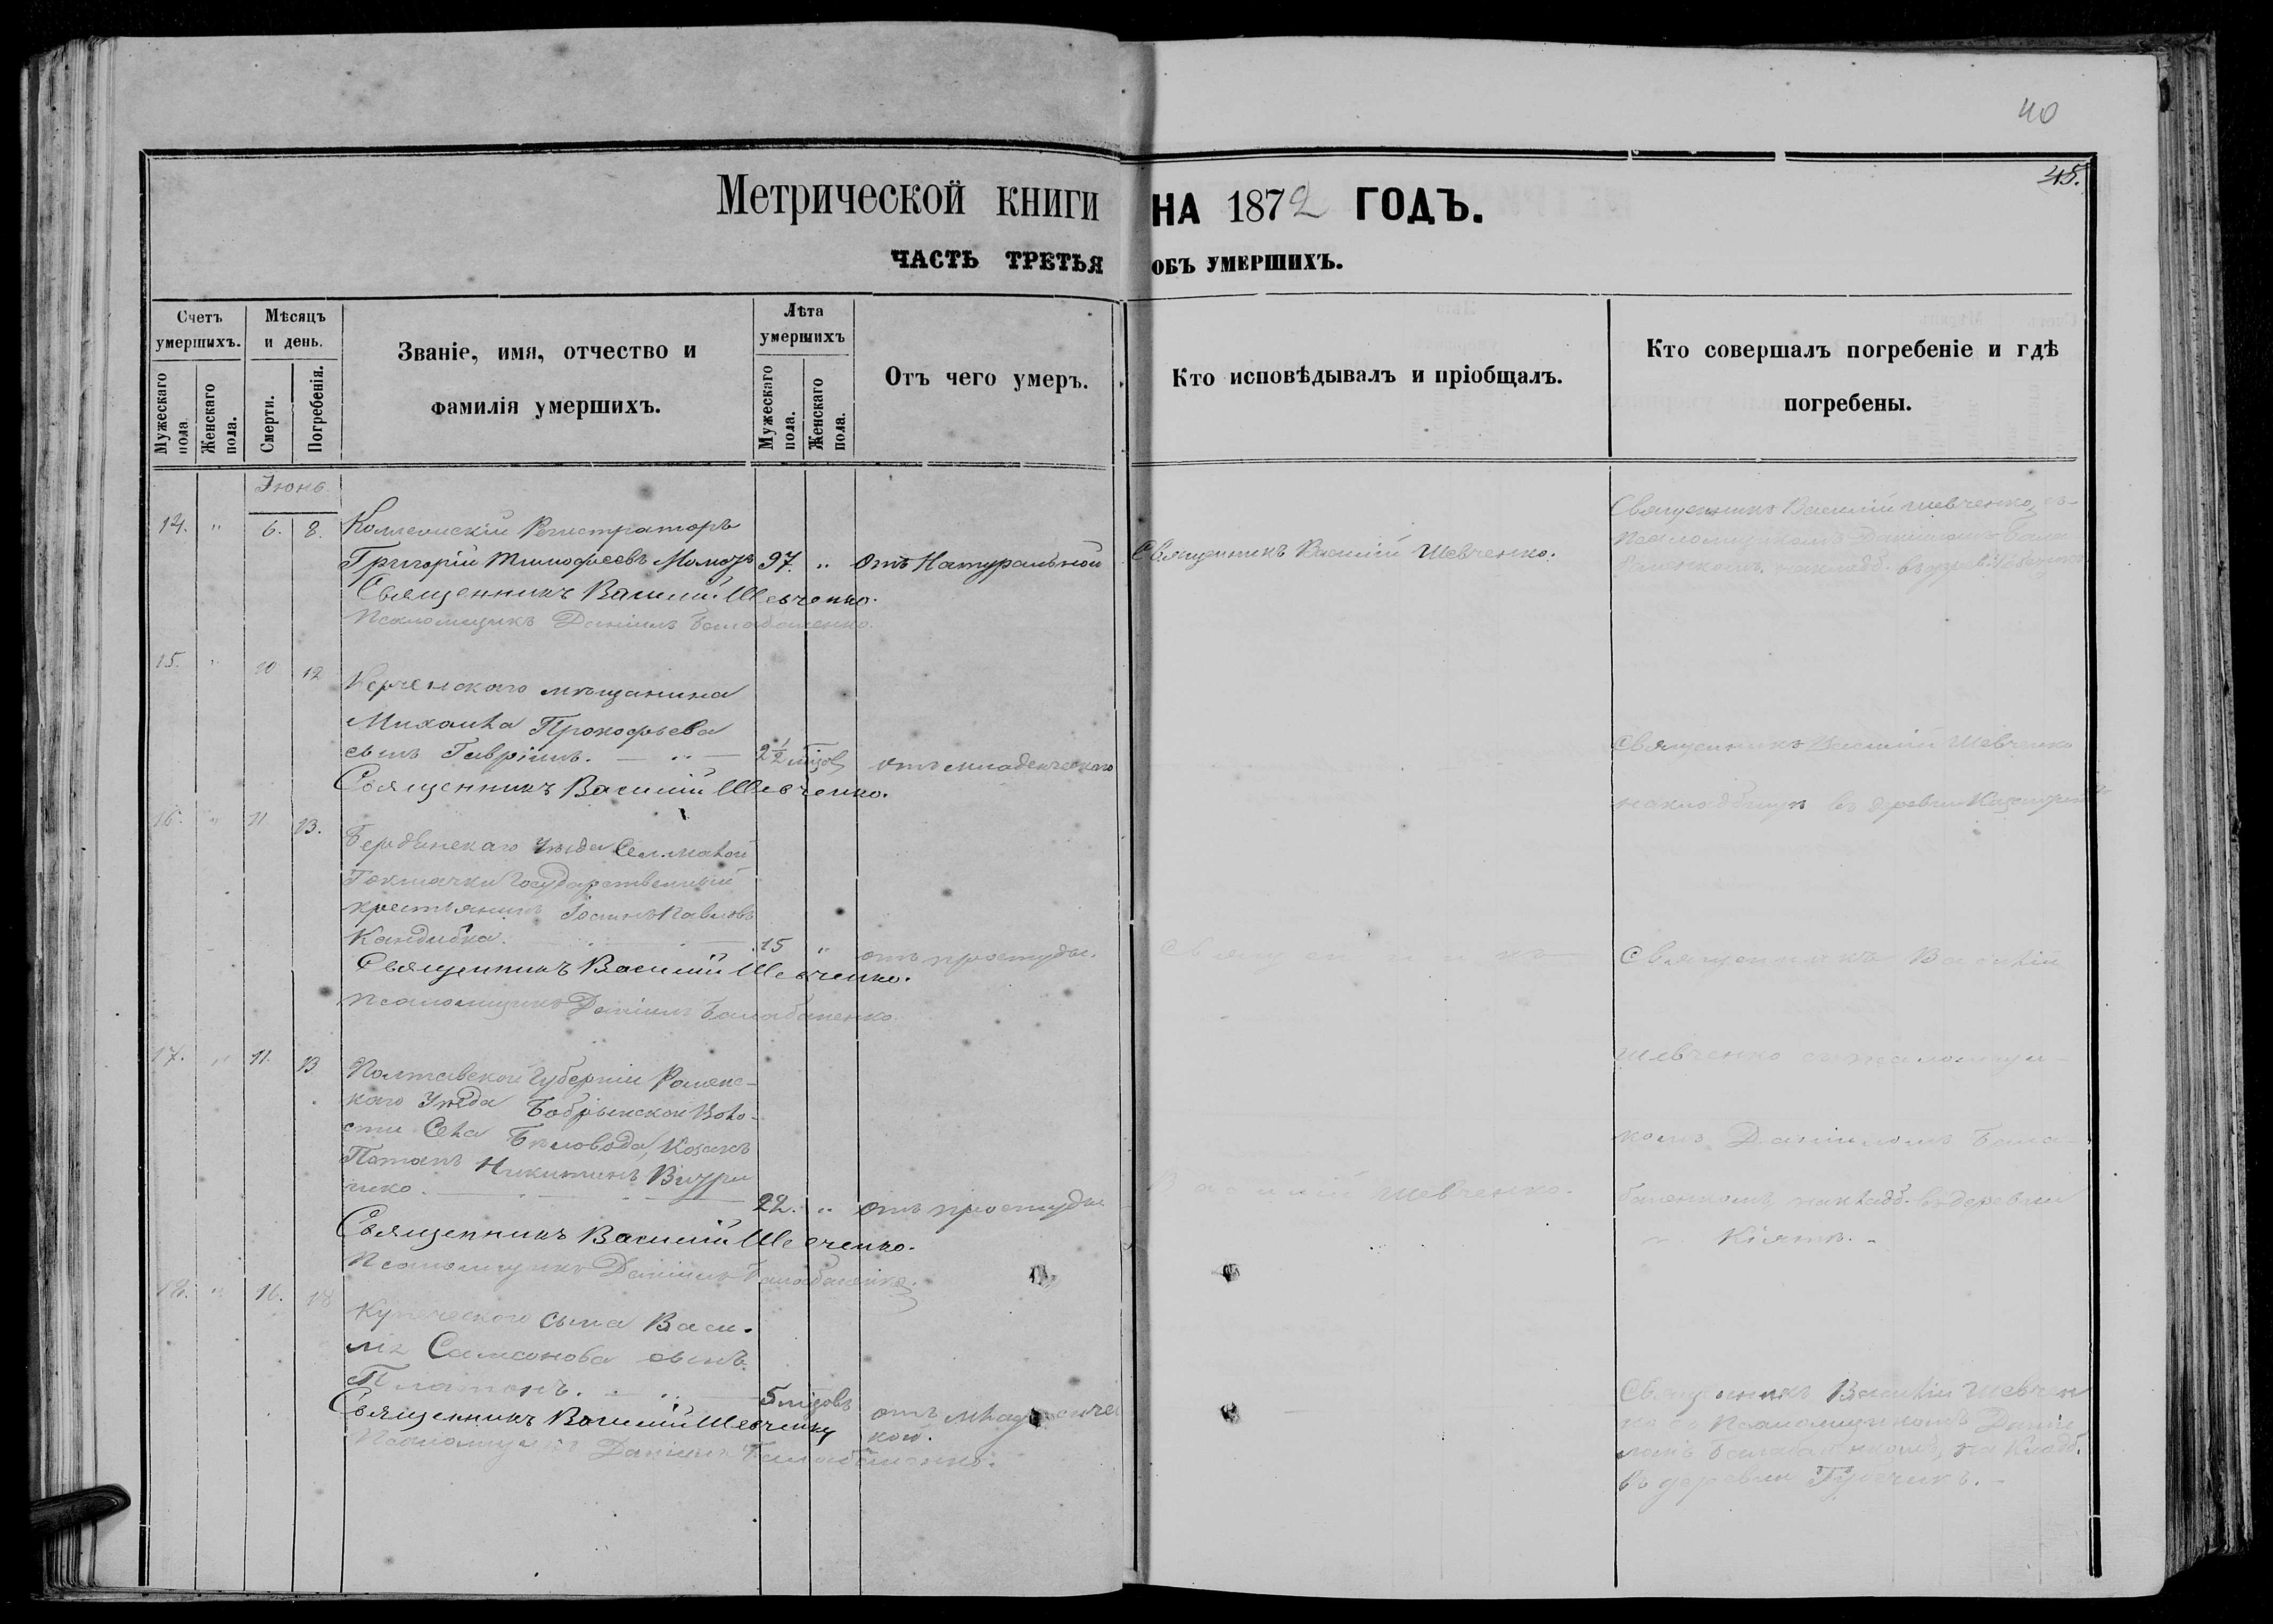 40
45.
Метрической книги на 1872 годъ.
часть третья объ умершихъ.
Счетъ умершихъ.
Мужескаго пола.
Женскаго пола.
Мѣсяцъ и день.
Смерти.
Погребенія.
Званіе, имя, отчество и
фамилія умершихъ.
Лѣта умершихъ
Мужескаго пола.
Женскаго пола.
Отъ чего умеръ.
Кто исповѣдывалъ и пріобщалъ.
Кто совершалъ погребеніе и гдѣ
погребены.
Іюнь
14. " 6. 8. Коллежскій Регистраторъ
Григорій Тимофеевъ 97. " Отъ Натуральной
Священникъ Василій Шевченко.
Псаломщикъ Даніилъ Балабаненко.
Священникъ Василій Шевченко.
Священникъ Василій Шевченко, съ
Псаломщикомъ Даніиломъ Бала
баненкомъ. на кладб.
15. " 10 12 Керченского мѣщанина
Михаила Прокофьева
сынъ Гавріилъ. — " — 2½ мѣцов отъ младенческаго
Священникъ Василій Шевченко.
Священникъ Василій Шевченко
на кладбищѣ въ деревни
16. " 11. 13. Бердянскаго Уѣзда Сел. Малой
Токмачки Государственный
крестьянинъ Іоаннъ Павловъ
Кандибка. 15 " отъ простуды.
Священникъ Василій Шевченко.
Псаломщикъ Даніилъ Балабаненко.
17. " 11. 13 Полтавской Губерніи Роменс-
каго Уѣзда Бобрыкской Воло-
сти Села Бѣловода, Козакъ
Потапъ Никитинъ
22. " отъ простуды
Священникъ Василій Шевченко.
Псаломщикъ Даніилъ Балабаненко.
Священникъ
Василій Шевченко.
Священникъ Василій
Шевченко съ псаломщи-
комъ Даніиломъ Бала-
баненкомъ, на кладб. въ деревни
Кіятъ. -
18. " 16. 18 Купеческого сына Васи-
лія Самсонова сынъ
Платонъ. — " — 5 мѣцовъ отъ младенчес
кой.
Священникъ Василій Шевченко
Псаломщикъ Даніилъ Балабаненко.
Священникъ Василій Шевчен
ко съ Псаломщикомъ Даніи
ломъ Балабаненкомъ, на Кладб.
въ деревни